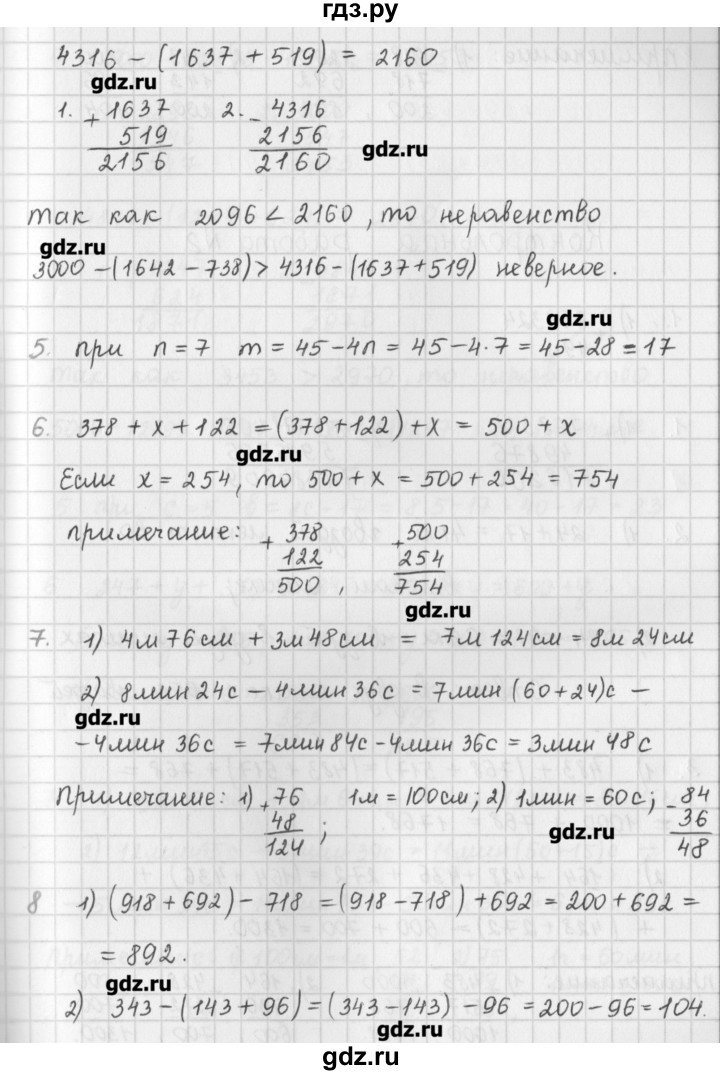 гдз.ру
4316 – (1637 + 519) = 2160
gdz.ru
1. + 1637   2. – 4316
519   2156   gdz.ru
2156   2160
так как 2096 < 2160, то неравенство
gdz.ru
3000 – (1642 – 738) > 4316 – (1637 + 519) неверное.
gdz.ru
5. при n = 7 m = 45 – 4n = 45 – 4·7 = 45 – 28 = 17
6. 378 + x + 122 = (378 + 122) + x = 500 + x
gdz.ru
Если x = 254, то 500 + x = 500 + 254 = 754
примечание: + 378   + 500
122   254
500 ,   754
gdz.ru
7. 1) 4м 76см + 3м 48см = 7м 124см = 8м 24см
2) 8мин 24с – 4мин 36с = 7мин (60 + 24)с –
gdz.ru
– 4мин 36с = 7мин 84с – 4мин 36с = 3мин 48с
Примечание: 1) + 76   1м = 100см; 2) 1мин = 60с; – 84
48 ;   gdz.ru   36
124   48
8 1) (918 + 692) – 718 = (918 – 718) + 692 = 200 + 692 =
= 892.
gdz.ru
2) 343 – (143 + 96) = (343 – 143) – 96 = 200 – 96 = 104.
gdz.ru
gdz.ru